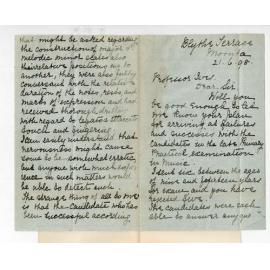 Blythe Terrace
Moonta
21.6.08.
Professor Ives.
Dear Sir
Will you
be good enough to let
me know your plan
for arriving at failures
and successes with the
candidates in the late Primary
Practical examination
in Music.
I sent six between the ages
of nine and fourteen years
for exam, and you have
rejected five.
The candidates were each
able to answer any
that might be asked regarding
the construction of major &
melodic minor scales also
their relative positions one to
another, they were also fully
conversant with the relative
duration of the notes, rests and
marks of expression and had
received thorough drilling
with regard to legato & staccato
touch and fingering
I can easily understand that
nervousness might cause
some to be somewhat erratic
but anyone with much
in such matters would
be able to detect such.
The strange thing of all to me
is that the Candidate who has
been successful according